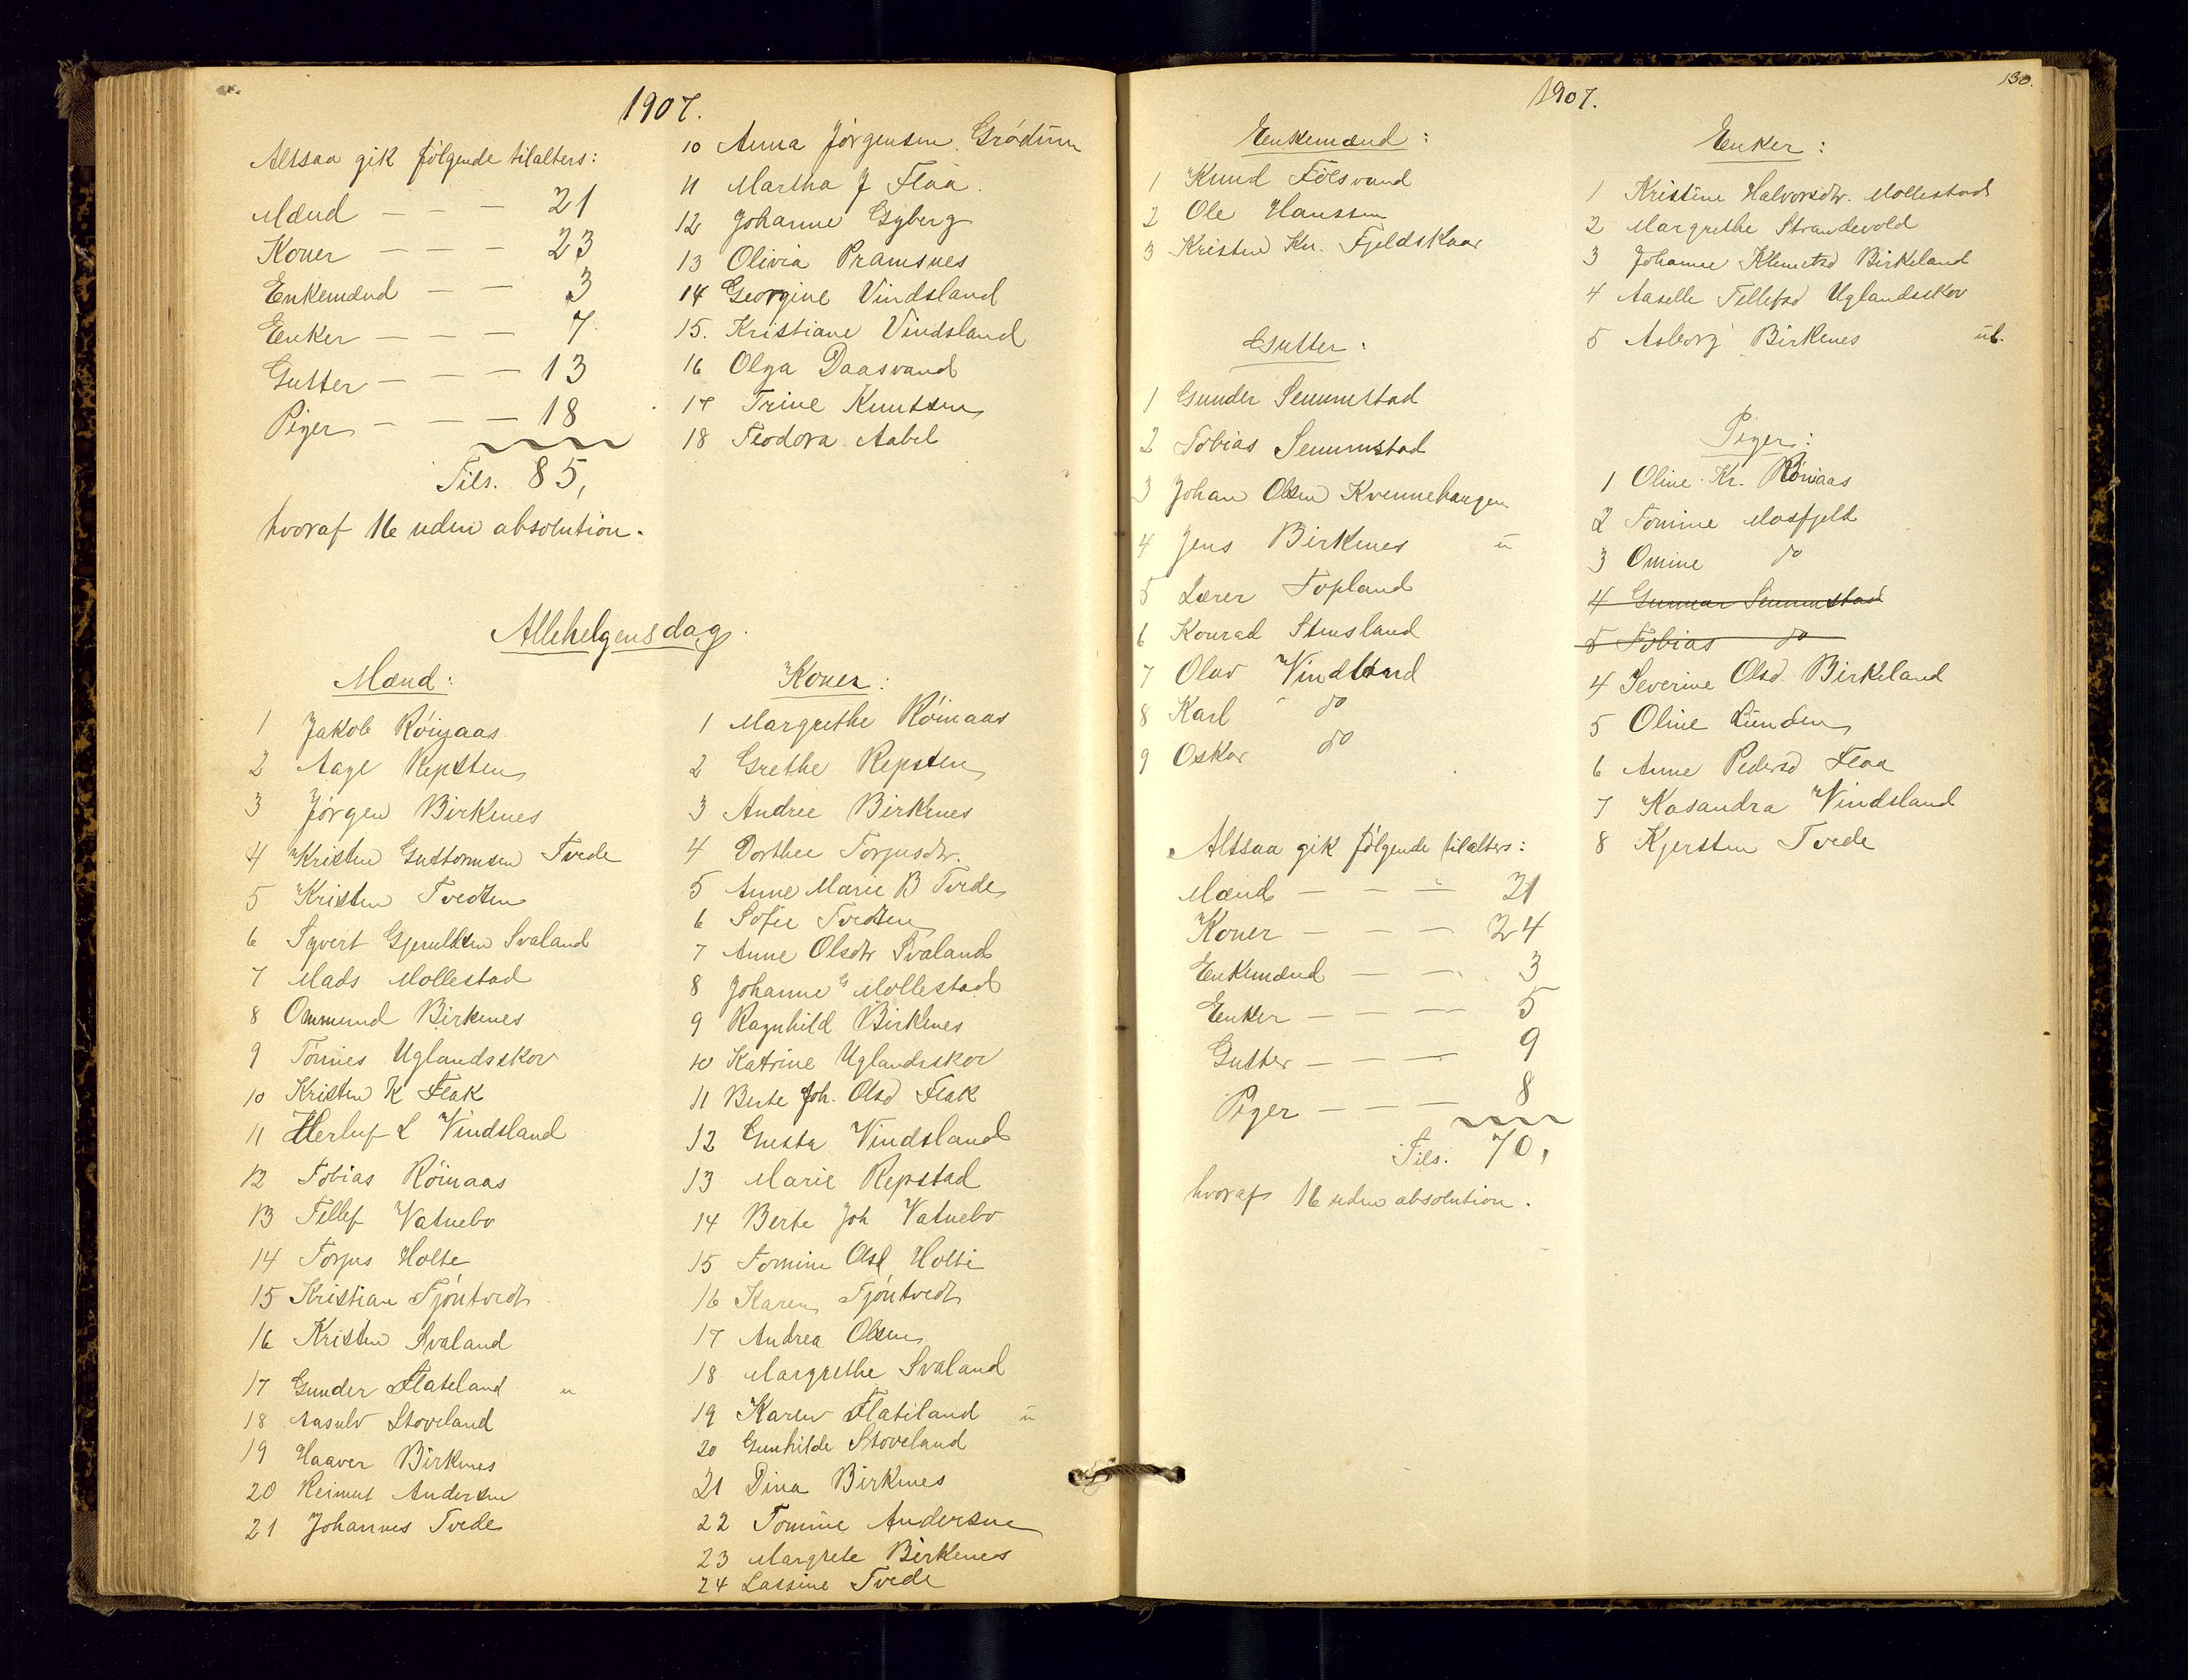 1907.
Altsaa gik følgende tilalters:
Mænd — — — 21
Koner — — — 23
Enkemænd — — 3
Enker — — — 7
Gutter — — — 13
Piger — — — 18
Tils. 85,
hvoraf 16 uden absolution.
10 Anna Jørgensen Grødum
11 Martha J Flaa.
12 Johanne Gyberg
13 Olivia Pramsnes
14 Georgine Vindsland
15. Kristiane Vindsland
16 Olga Daasvand
17 Trine Knutsen
18 Teodora Aabel
Allehelgensdag.
Mænd:
1 Jakob Röinaas
2 Aage Repsten
3 Jørgen Birkenes
4 Kristen Guttormsen Tvede
5 Kristen Tvedten
6 Syvert Gjerulksen Svaland
7 Mads Mollestad
8 Ommund Birkenes
9 Tønnes Uglandsskov
10 Kristen K Flak
11 Herluf L Vindsland
12 Tobias Röinaas
13 Tellef Vatnebo
14 Torjus Holte
15 Kristian Tjöntvedt
16 Kristen Svaland
17 Gunder Flateland u
18 Aasulv Stoveland
19 Haaver Birkenes
20 Reimert Andersen
21 Johannes Tvede
Koner:
1 Margrethe Röinaas
2 Grethe Repsten
3 Andree Birkenes
4 Dorthee Torjusdtr.
5 Anne Marie B Tvede
6 Sofie Tvedten
7 Anne Olsdtr Svaland
8 Johanne G Mollestad
9 Ragnhild Birkenes
10 Katrine Uglandsskov
11 Berte Joh. Olsd Flak
12 Gusta Vindsland
13 Marie Repstad
14 Berte Joh Vatnebo
15 Tomine Olsd Holte
16 Karen Tjöntvedt
17 Andrea Olsen
18 Margrethe Svaland
19 Karen Flateland u
20 Gunhilde Stoveland
21 Dina Birkenes
22 Tomine Andersen
23 Margrete Birkenes
24 Lassine Tvede
130.
1907.
Enkemænd:
1 Knud Fölsvand
2 Ole Hanssen
3 Kristen Kn. Fjeldskaar
Gutter:
1 Gunder Senumstad
2 Tobias Senumstad
3 Johan Olsen Kvennehaugen
4 Jens Birkenes u
5 Lærer Topland
6 Konrad Stensland
7 Olav Vindsland
8 Karl do
9 Oskar do
Altsaa gik følgende tilalters:
Mænd — — — 21
Koner — — — 24
Enkemænd — — 3
Enker — — — 5
Gutter — — — 9
Piger — — — 8
Tils. 70,
hvoraf 16 uden absolution.
Enker:
1 Kristine Halvorsdtr. Mollestad
2 Margrethe Strandevold
3 Johanne Klemetsd Birkeland
4 Aaselle Tellefsd Uglandsskov
5 Asborg Birkenes
Piger:
1 Oline Kr. Röinaas
2 Tomine Mosfjeld
3 Omine do
4 Gunnar Senumstad
5 Tobias do
4 Severine Olsd Birkeland
5 Oline Lunden
6 Anne Pedersd Flaa
7 Kasandra Vindsland
8 Kjersten Tvede